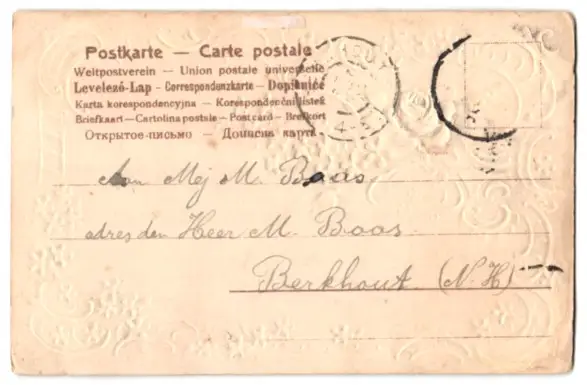 Postkarte — Carte postale
Weltpostverein — Union postale universelle
Levelező-Lap — Correspondenzkarte — Dopisnice
Karta korespondencyjna — Korespondenční lístek
Briefkaart — Cartolina postale — Post card — Brefkort
Открытое письмо — Дописна карта
Aan Mej M. Boos
adres den Heer M. Boos
Berkhout (N.H)